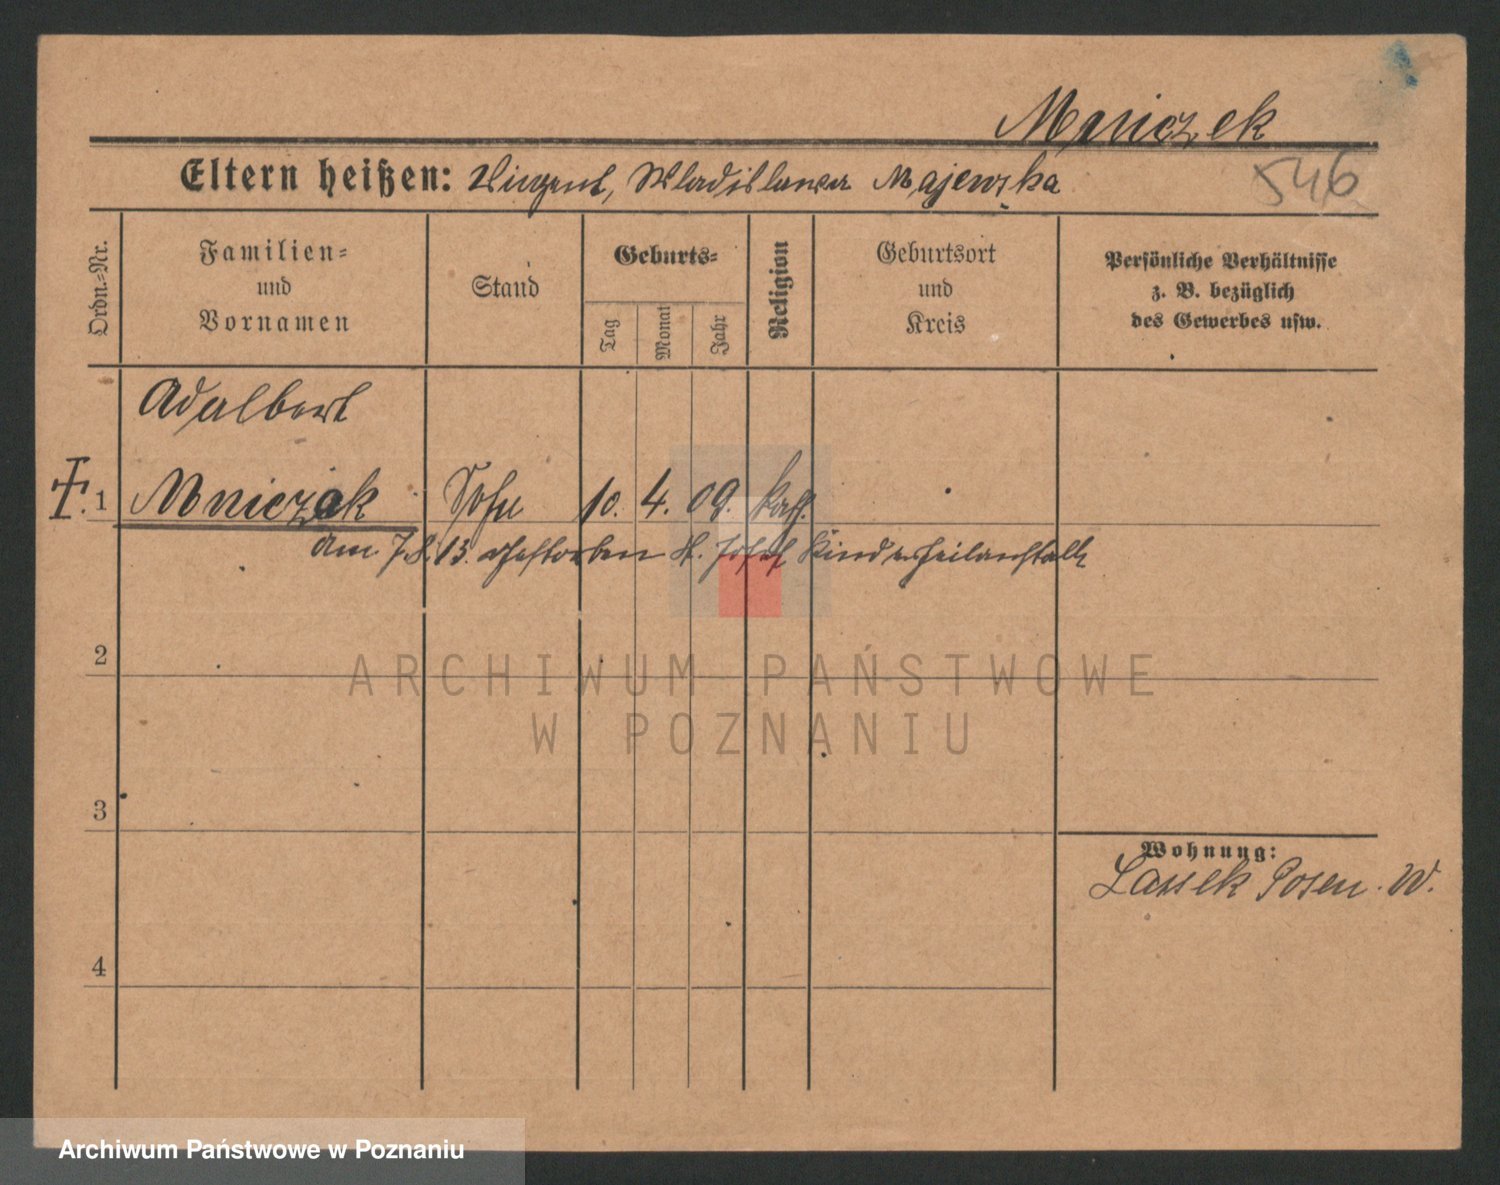 Mniczek
Eltern heißen: Vinzent, Wladislawa Majewska
546
Ordn.-Nr.
Familien-
und
Vornamen
Stand
Geburts-
Tag
Monat
Jahr
Religion
Geburtsort
und
Kreis
Persönliche Verhältnisse
z. B. bezüglich
des Gewerbes usw.
Adalbert
1 Mniczak Sohn 10. 4. 09. kath.
am 7.8.13. gestorben St. Josef Kinderheilanstalt
2
ARCHIWUM PAŃSTWOWE
W POZNANIU
3
Wohnung:
Lassek Posen. W.
4
Archiwum Państwowe w Poznaniu